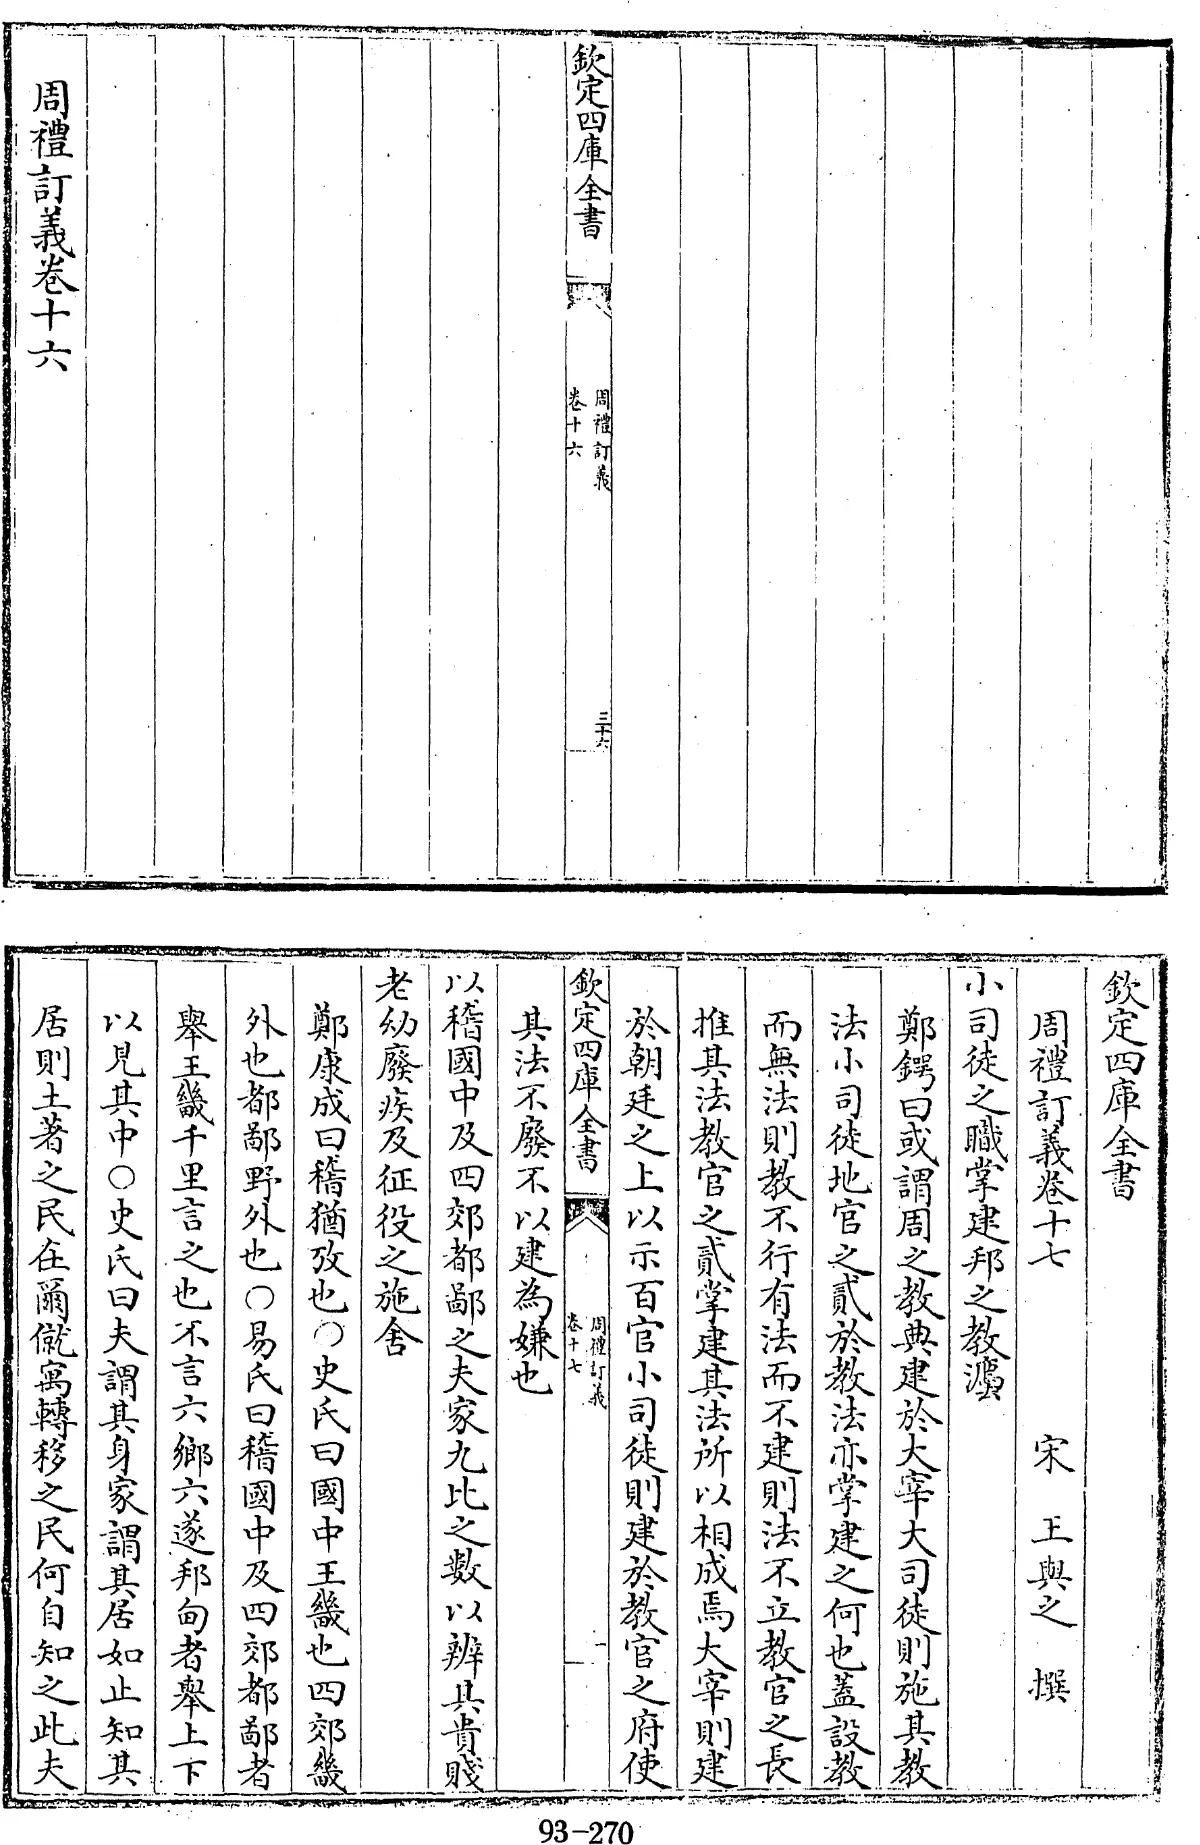 欽定四庫全書
周禮訂義
卷十六
三十六
周禮訂義卷十六
欽定四庫全書
周禮訂義卷十七
宋 王與之 撰
小司徒之職掌建邦之教灋
鄭鍔曰或謂周之教典建於大宰大司徒則施其教
法小司徒地官之貳於教法亦掌建之何也蓋設教
而無法則教不行有法而不建則法不立教官之長
推其法教官之貳掌建其法所以相成焉大宰則建
於朝廷之上以示百官小司徒則建於教官之府使
欽定四庫全書
周禮訂義
卷十七
一
其法不廢不以建為嫌也
以稽國中及四郊都鄙之夫家九比之數以辨其貴賤
老幼廢疾及征役之施舍
鄭康成曰稽猶攷也○史氏曰國中王畿也四郊畿
外也都鄙野外也○易氏曰稽國中及四郊都鄙者
舉王畿千里言之也不言六鄉六遂邦甸者舉上下
以見其中○史氏曰夫謂其身家謂其居如止知其
居則土著之民在爾僦寓轉移之民何自知之此夫
93-270